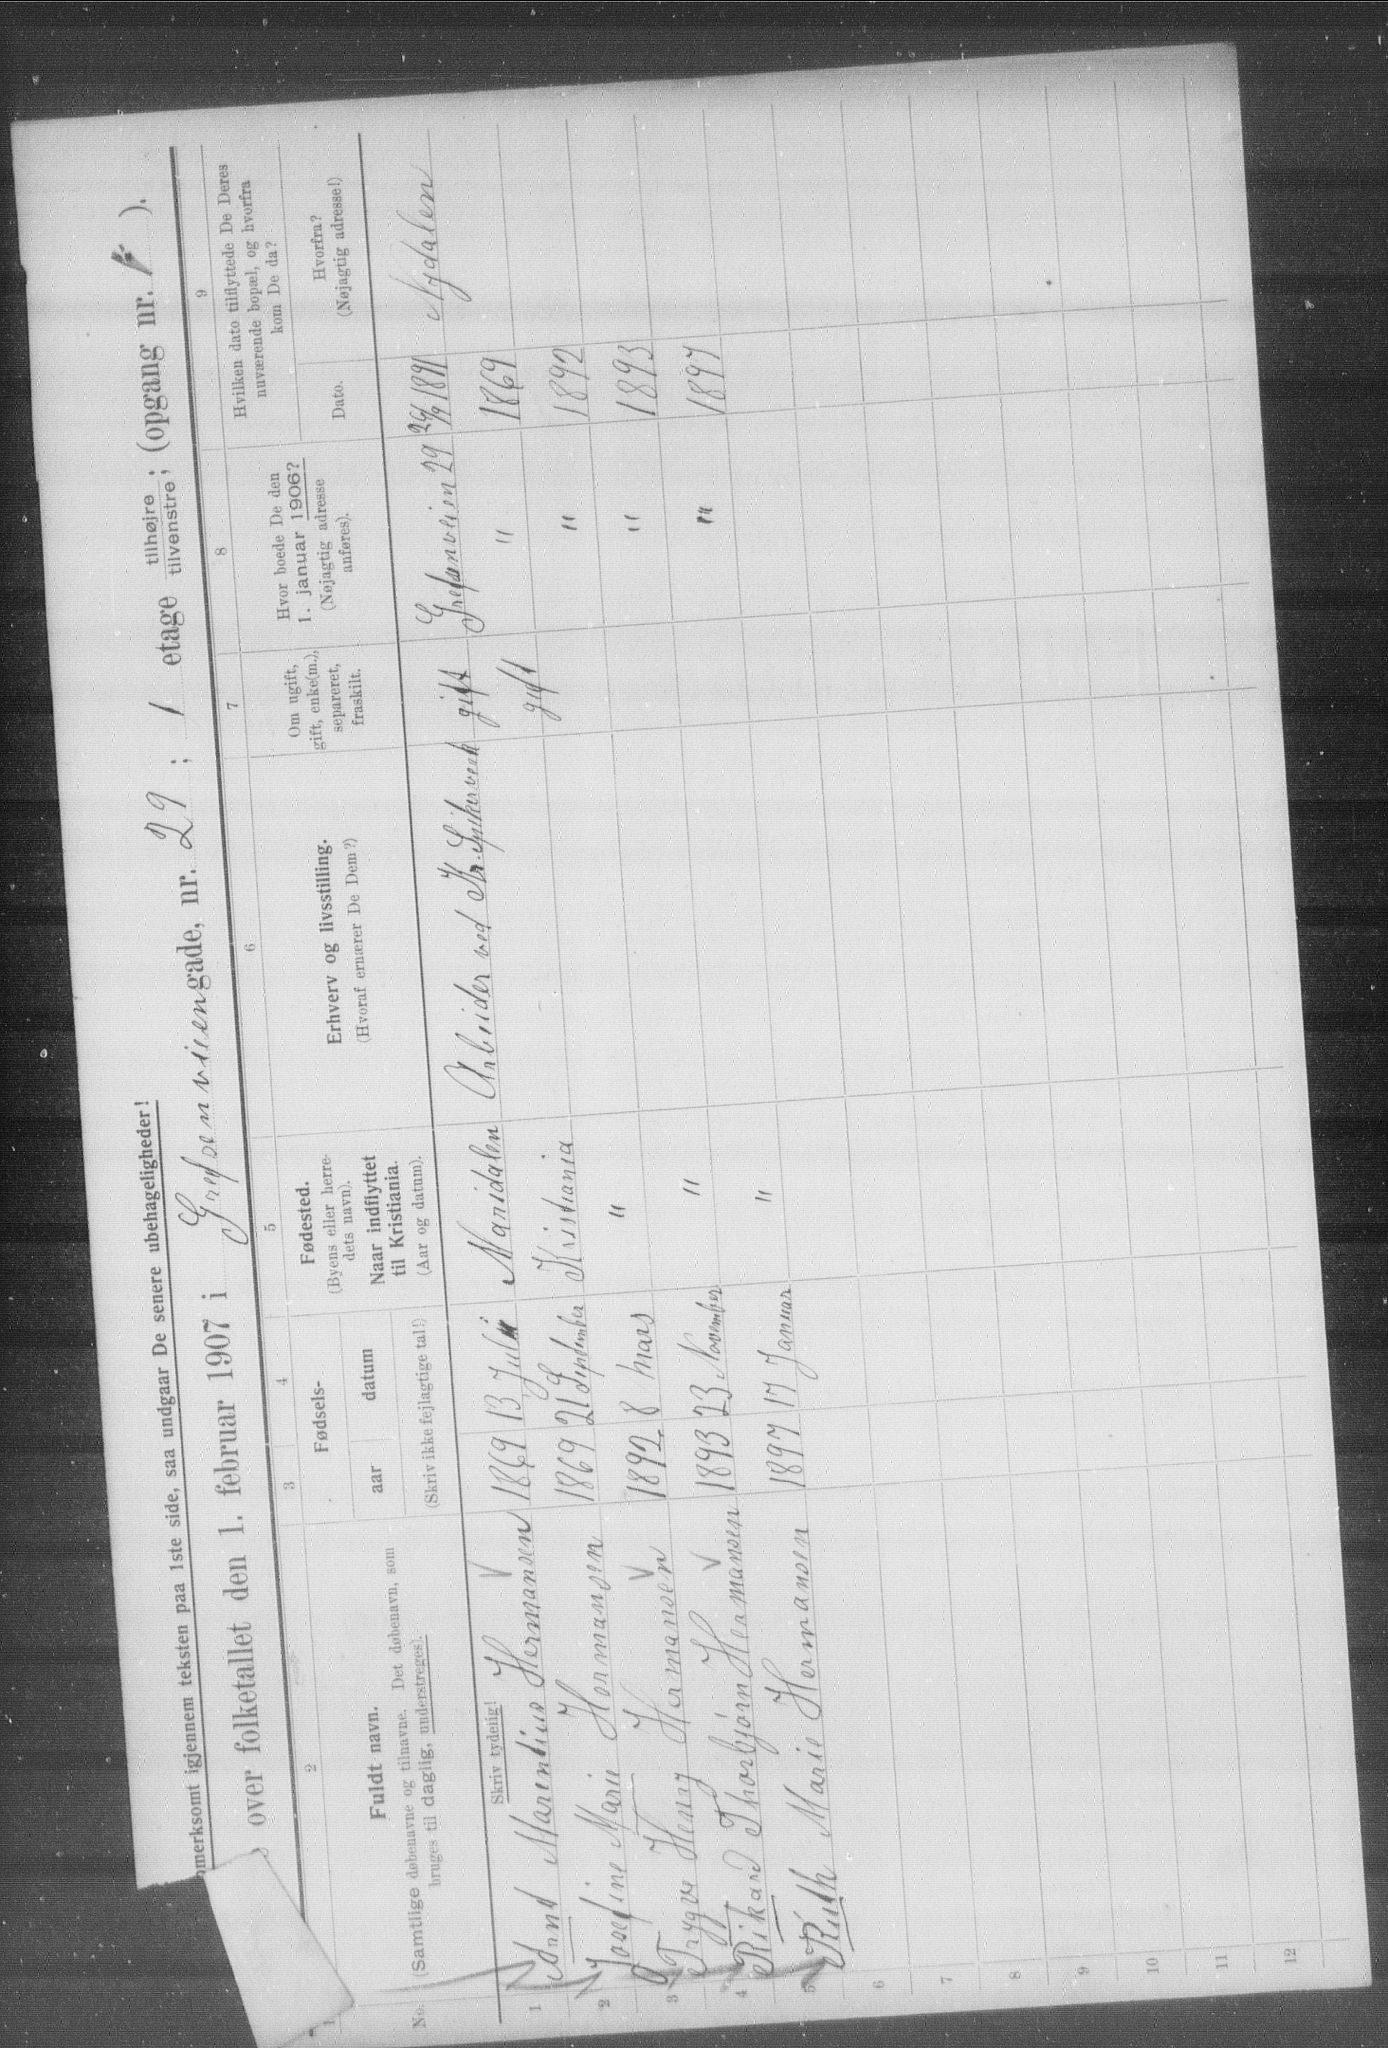 omerksomt igjennem teksten paa 1ste side, saa undgaar De senere ubehageligheder!
over folketallet den 1. februar 1907 i Grefsenveiengade, nr. 29; 1 etage tilhøjre; tilvenstre; (opgang nr. ).
2 3 4 5 6 7 8 9
No.
Fuldt navn.
(Samtlige døbenavne og tilnavne. Det døbenavn, som
bruges til daglig, understreges).
Skriv tydelig!
Fødsels-
aar datum
(Skriv ikke fejlagtige tal!)
Fødested.
(Byens eller herre-
dets navn).
Naar indflyttet
til Kristiania.
(Aar og datum).
Erhverv og livsstilling.
(Hvoraf ernærer De Dem?)
Om ugift,
gift, enke(m.),
separeret,
fraskilt.
Hvor boede De den
1. januar 1906?
(Nøjagtig adresse
anføres).
Hvilken dato tilflyttede De Deres
nuværende bopæl, og hvorfra
kom De da?
Dato.
Hvorfra?
(Nøjagtig adresse!)
1 Arnt Marentius Hermansen V 1869 13 Juli Maridalen Arbeider ved Kr. Spikerverk gift Grefsenveien 29 1891 Nydalen
2 Josefine Marie Hermansen 1869 21 September Kristiania gift " 1869
3 Trygve Henry Hermansen V 1892 8 Mars " " 1892
4 Rikard Thorbjørn Hermansen V 1893 23 November " " 1893
5 Ruth Marie Hermansen 1897 17 Januar " " 1897
6
7
8
9
10
11
12